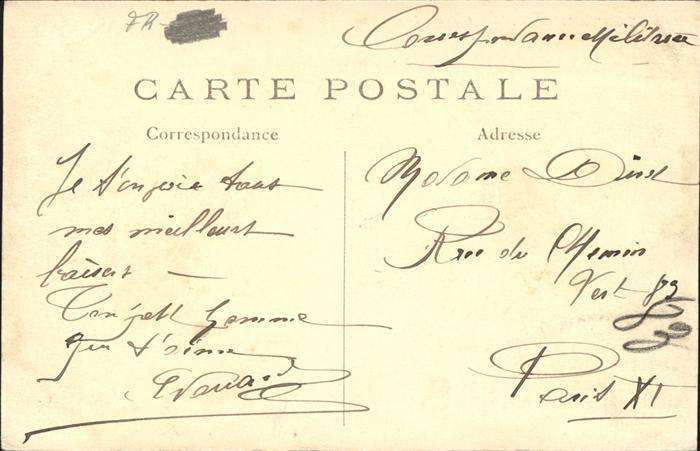 Correspondance Militaire
CARTE POSTALE
Correspondance
Adresse
Je t'envoie tous
mes meilleurs
baisers —
Ton petit homme
qui t'aime
Edouard
Madame
Rue du Chemin
Vert 89
Paris XI